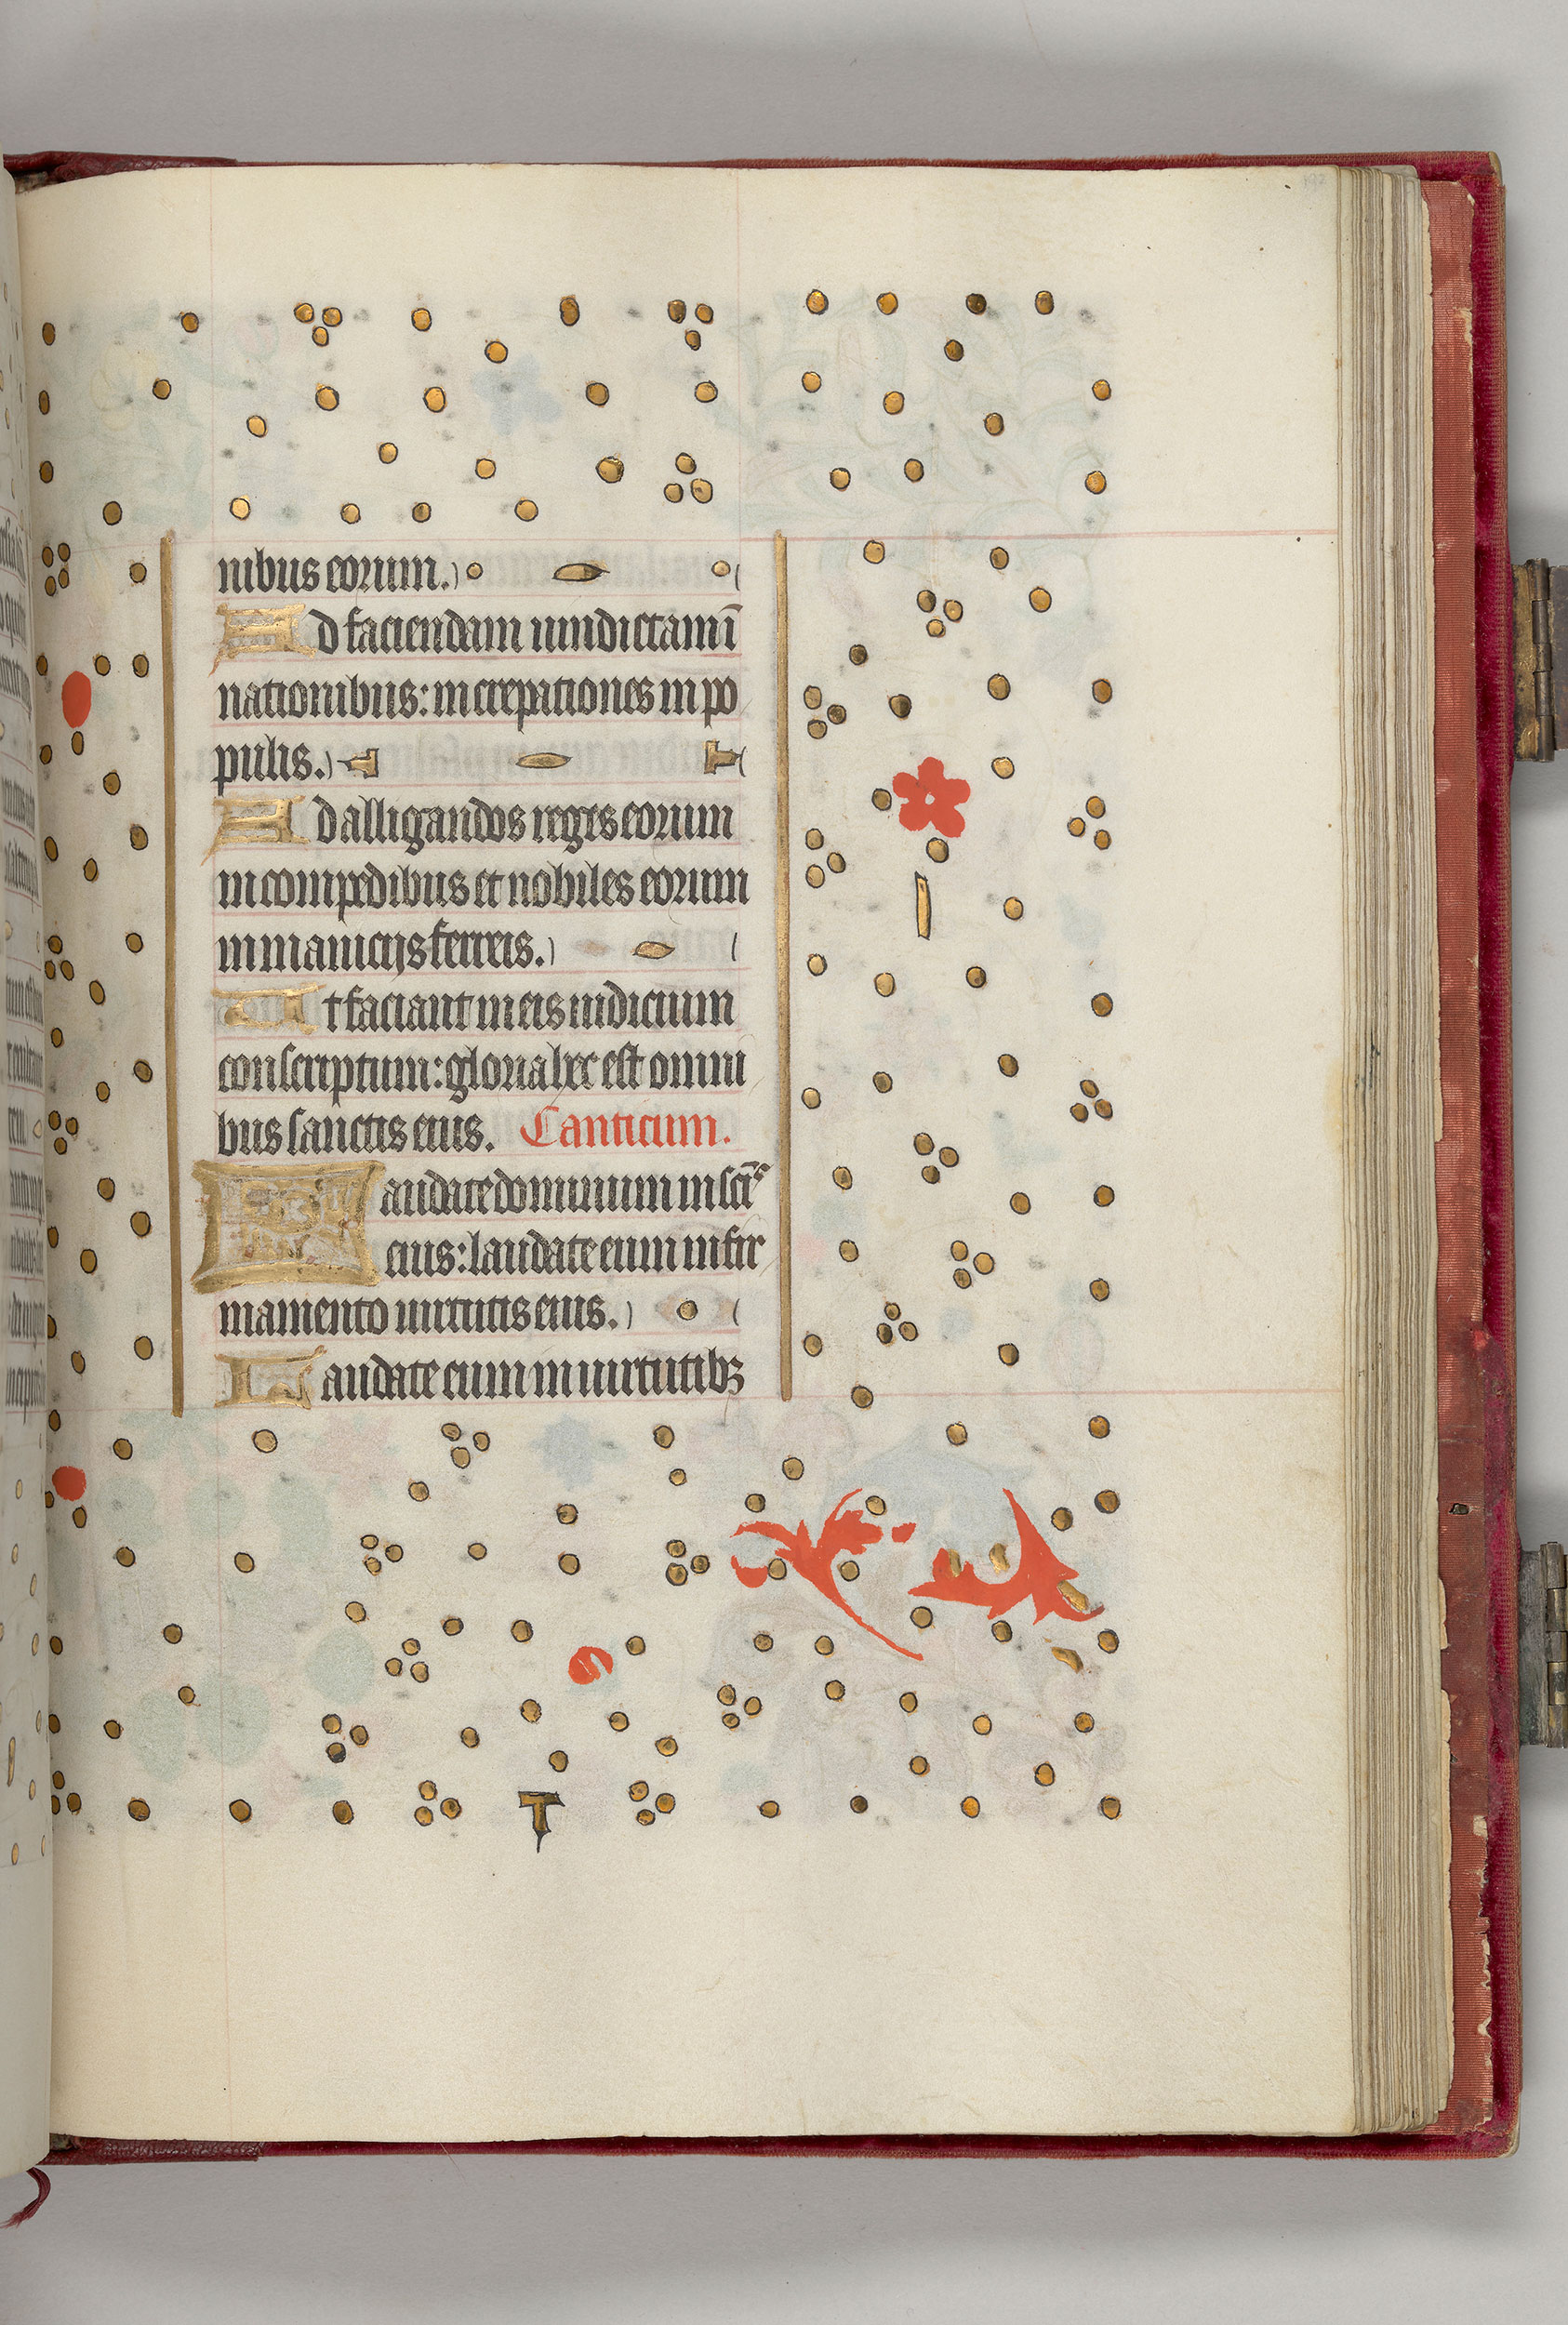 nibus eorum.
Ad faciendam uindictam ī
nationibus: increpationes in po
pulis.
Ad alligandos reges eorum
in compedibus et nobiles eorum
in manicijs ferreis.
Ut faciant in eis iudicium
conscriptum: gloria hec est omni
bus sanctis eius. Canticum.
Laudate dominum in scīs
eius: laudate eum in fir
mamento uirtutis eius.
Laudate eum in uirtutibꝫ